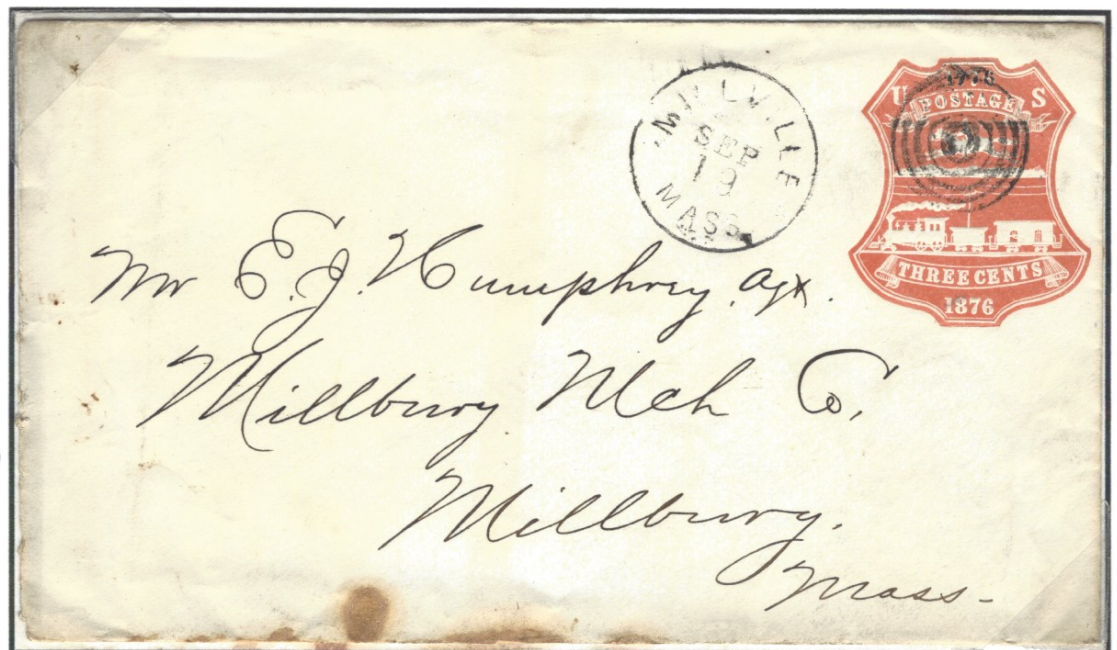 MILLVILLE
SEP
19
MASS.
1776
U S
POSTAGE
THREE CENTS
1876
Mr E. J. Humphrey. Agt.
Millbury Mch Co,
Millbury.
Mass-